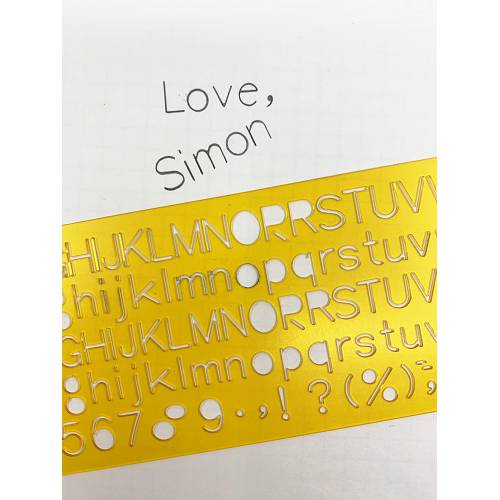 Love,
Simon
GHIJKLMNOPRRSTUVV
hijklmnopqrstuv
GHIJKLMNOPRRSTUV
ghijklmnopqrstuv
56789.,!?(%)